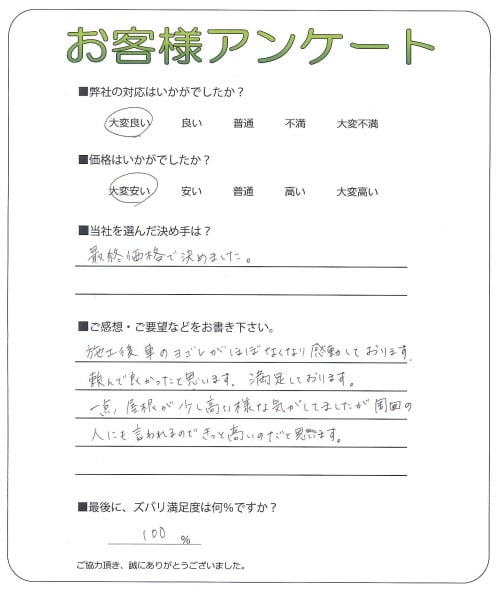 お客様アンケート
■弊社の対応はいかがでしたか?
大変良い 良い 普通 不満 大変不満
■価格はいかがでしたか?
大変安い 安い 普通 高い 大変高い
■当社を選んだ決め手は?
最終価格で決めました。
■ご感想・ご要望などをお書き下さい。
施工後車のヨゴレがほぼなくなり感動しております。
頼んで良かったと思います。満足しております。
一点,屋根が少し高い様な気がしてましたが周囲の
人にも言われるのできっと高いのだと思います。
■最後に、ズバリ満足度は何%ですか?
100 %
ご協力頂き、誠にありがとうございました。